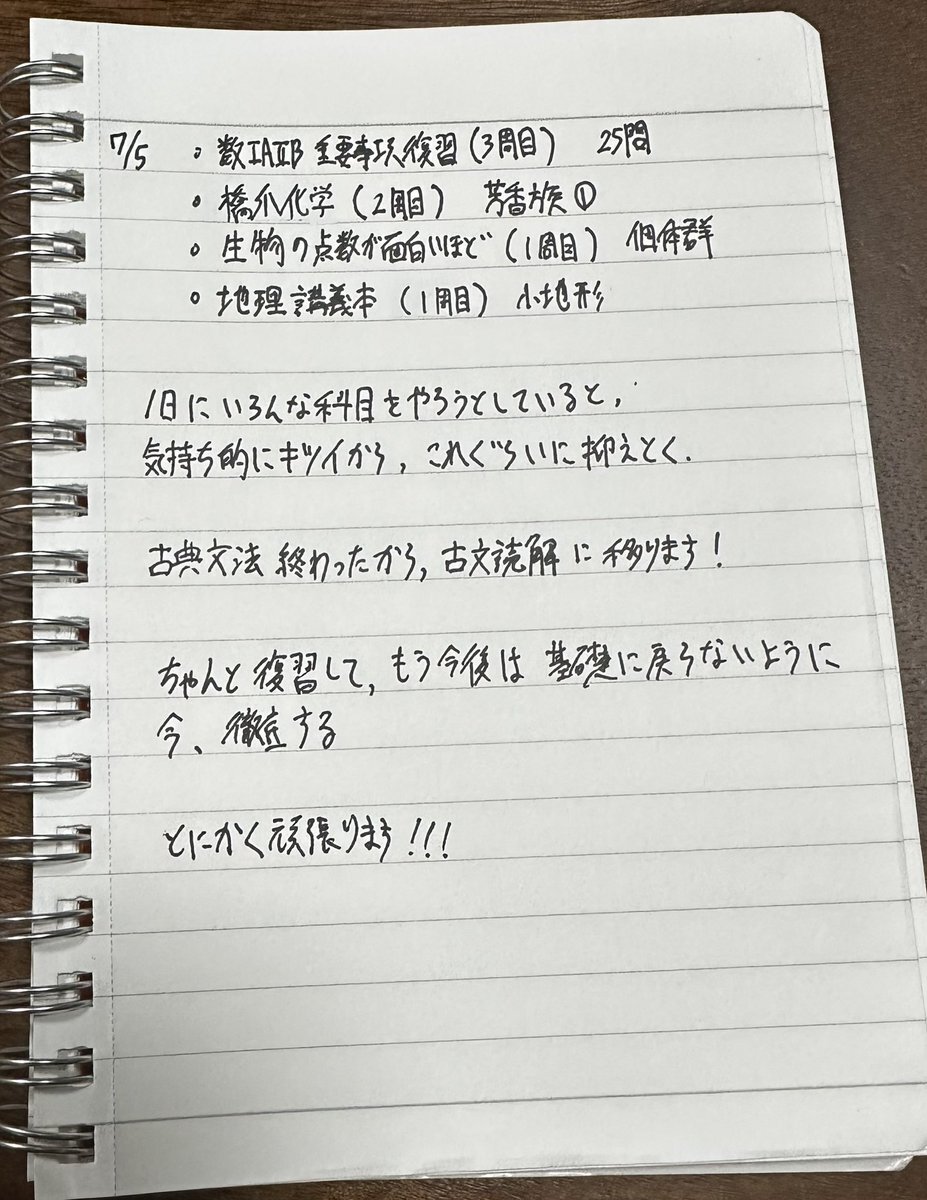 7/5 ・数ⅠAⅡB 重要事項復習(3周目) 25問
・橋爪化学(2周目) 芳香族①
・生物の点数が面白いほど(1周目) 個体群
・地理講義本(1周目) 小地形
1日にいろんな科目をやろうとしていると,
気持ち的にキツイから, これぐらいに抑えとく.
古典文法終わったから, 古文読解に移ります!
ちゃんと復習して, もう今後は基礎に戻らないように
今、徹底する
とにかく頑張ります!!!